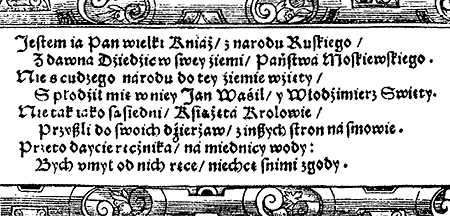 Jestem ia Pan wielki Kniáź / z narodu Ruskiego /
Z dawna Dźiedźic w swey źiemi / Páństwá Moskiewskiego.
Nie s cudzego narodu do tey źiemie wźięty /
Spłodźił mię w niey Jan Wáśil / y Włodźimierz Swięty.
Nie ták iáko sąśiedni / Kśiążętá Krolowie /
Przyßli do swoich dźierżaw / z inßych stron ná smowie.
Przeto daycie ręcżniká / ná miednicy wody:
Bych vmył od nich ręce / niechcę śnimi zgody.